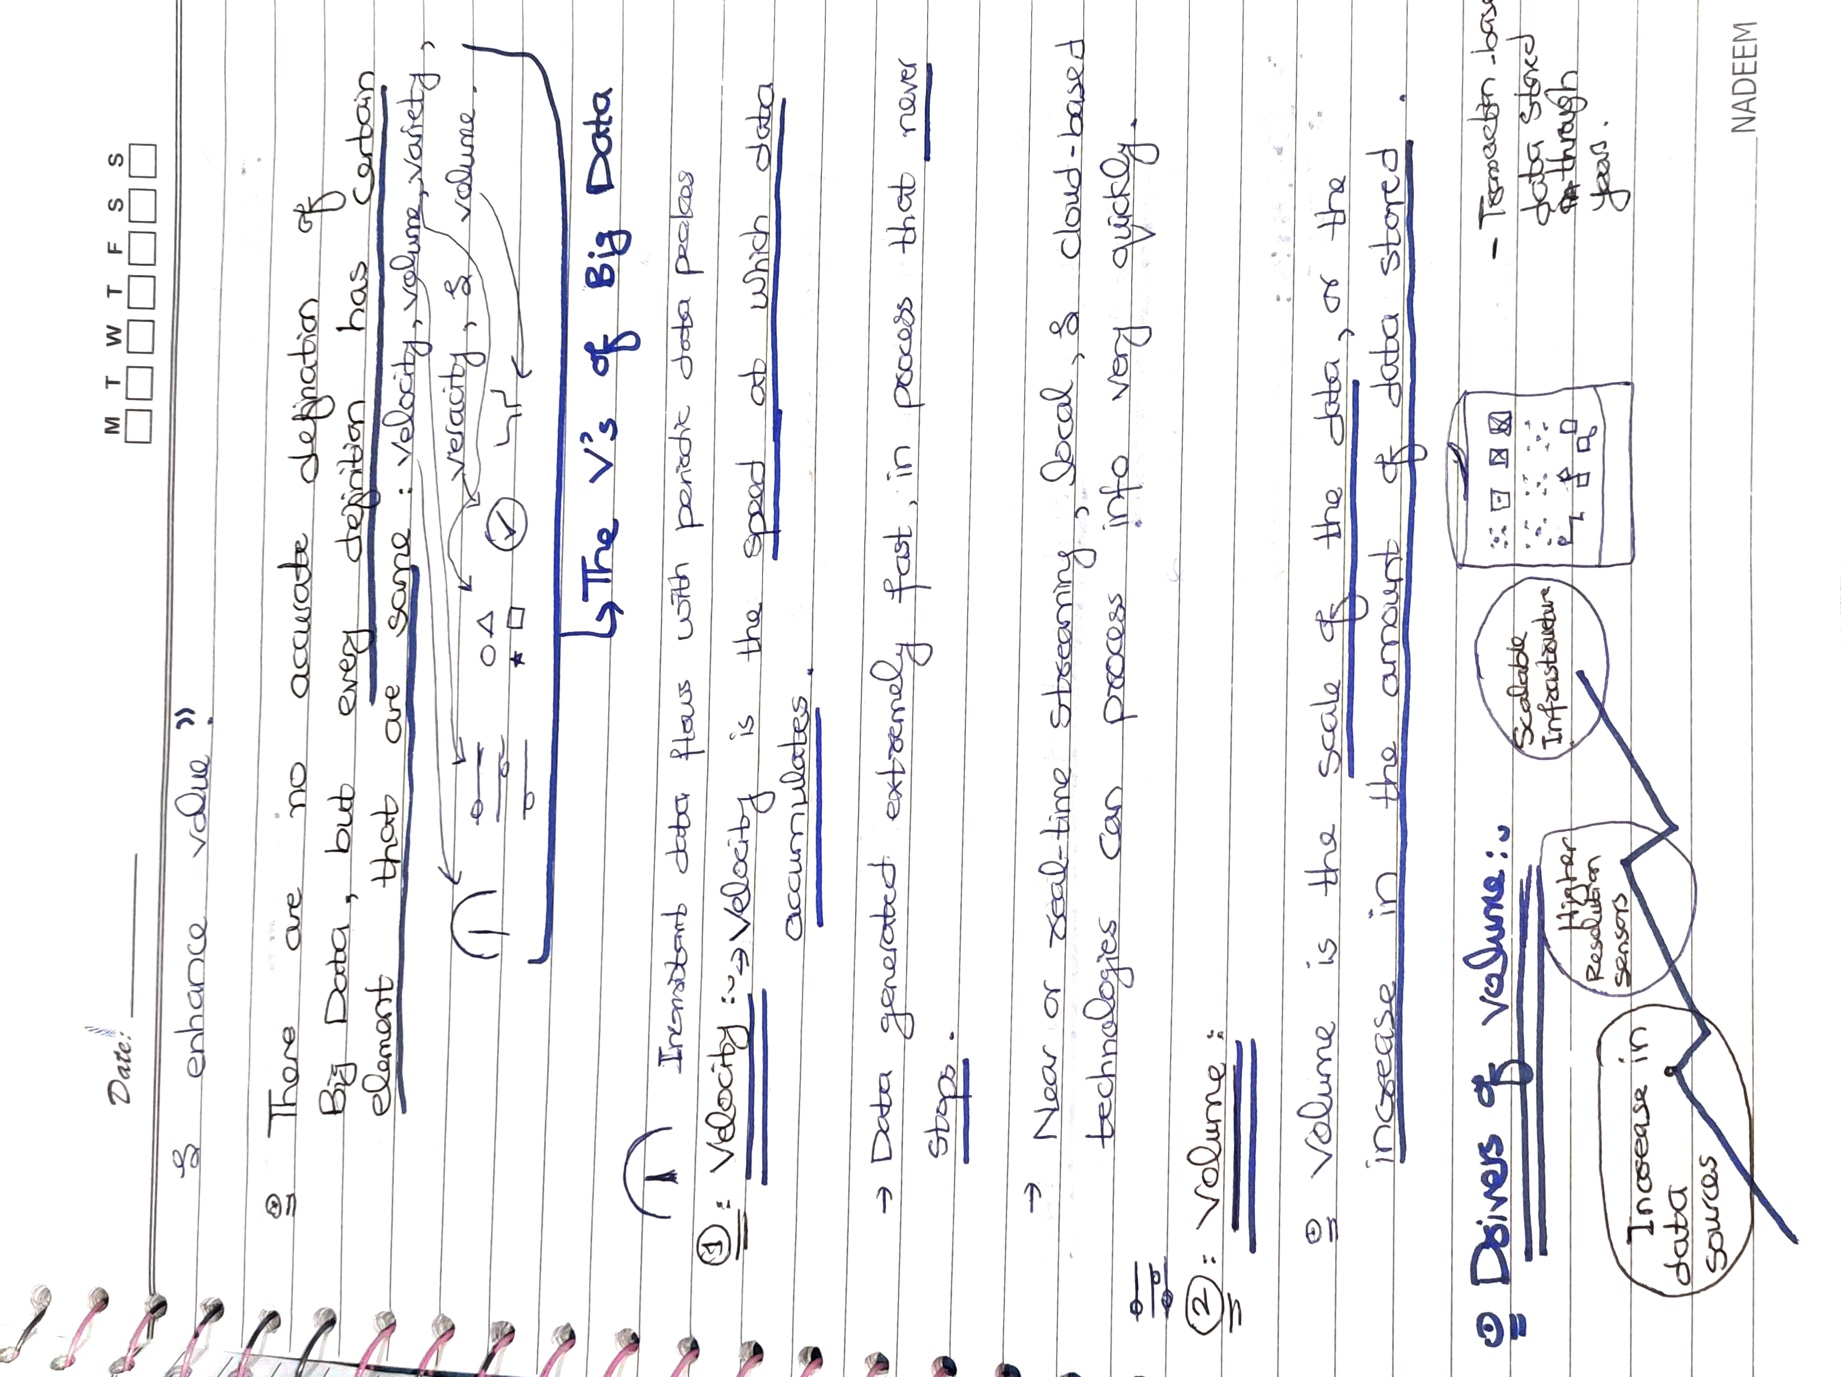 Date:
M T W T F S S
& enhance value".
There are no accurate defination of
Big Data, but every definition has certain
element that are same : velocity, volume, variety,
veracity, & volume.
↳ The V's of Big Data
Inconstant data flows with periodic data peakes
①: Velocity :~ → Velocity is the speed at which data
accumulates.
→ Data generated extremely fast, in process that never
stops.
→ Near or real-time streaming, local, & cloud-based
technologies can process info very quickly.
②: Volume :
Volume is the scale of the data, or the
increase in the amount of data stored.
Drivers of volume:~
Increase in
data
sources
Higher
Resolution
sensors
Scalable
Infrastructure
- Transactn-base
data stored
through
years.
NADEEM